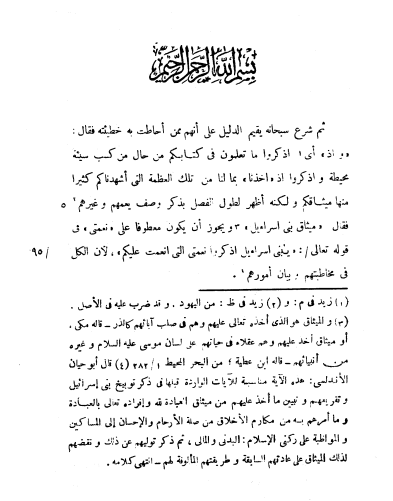 بسم الله الرحمن الرحيم
ثم شرع سبحانه يقيم الدليل على أنهم ممن أحاطت به خطيئته فقال:
﴿و اذ﴾ أى ١ اذكروا ما تعلمون فى كتابكم من حال من كسب سيئة
محيطة و اذكروا اذ ﴿اخذنا﴾ بما لنا من تلك العظمة التى أشهدناكم كثيرا
منها ميثاقكم و لكنه أظهر لطول الفصل بذكر وصف يعمهم و غيرهم ٢ ٥
فقال ﴿ميثاق بنى اسراءيل﴾ ٣ و يجوز أن يكون معطوفا على «نعمتى» فى
قوله تعالى/: ﴿يٰبنى اسراءيل اذكروا نعمتى التى انعمت عليكم﴾، لأن الكل / ٩٥
فى مخاطبتهم و بيان أمورهم ٤.
(١) زيد فى م: و (٢) زيد فى ظ: من اليهود. و قد ضرب عليه فى الأصل.
(٣) و الميثاق هو الذى أخذه تعالى عليهم و هم فى صلب آبائهم كالذر ـ قاله مكى،
أو ميثاق أخذ عليهم و هم عقلاء فى حياتهم على لسان موسى عليه السلام و غيره
من أنبيائهم ـ قاله ابن عطية؛ من البحر المحيط ١ / ٢٨٢ (٤) قال أبو حيان
الأندلسى: هذه الآية مناسبة للآيات الواردة قبلها فى ذكر توبيخ بنى إسرائيل
و تقريعهم و تبيين ما أخذ عليهم من ميثاق العبادة لله و إفراده تعالى بالعبادة
و ما أمرهم به من مكارم الأخلاق من صلة الأرحام و الإحسان إلى المساكين
و المواظبة على ركنى الإسلام: البدنى و المالى، ثم ذكر توليهم عن ذلك و نقضهم
لذلك الميثاق على عادتهم السابقة و طريقتهم المألوفة لهم ـ انتهى كلامه.